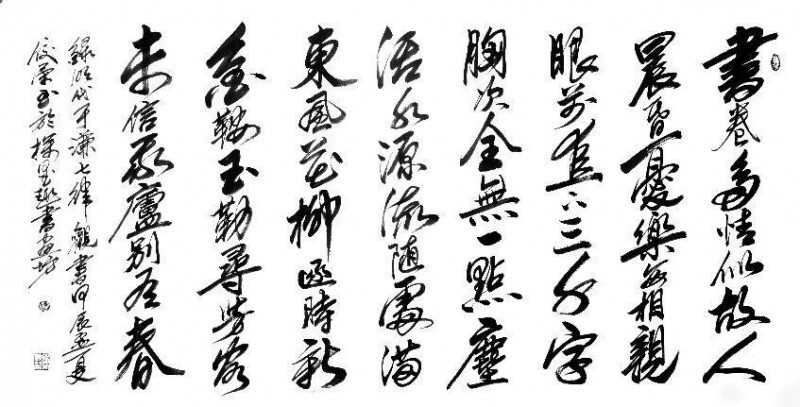 書卷多情似故人
晨昏憂樂每相親
眼前直下三千字
胸次全無一點塵
活水源流随處滿
東風花柳逐時新
金鞍玉勒尋芳客
未信我廬別有春
錄明代于謙七律觀書甲辰孟夏
於墨趣書畫坊